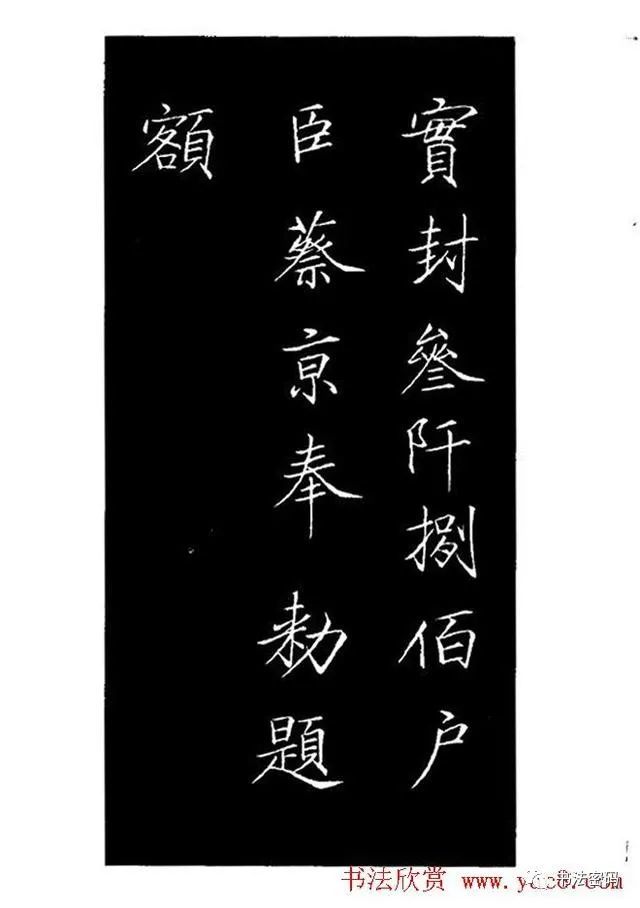 實封叄阡捌佰户
臣蔡京奉敕題
額
书法欣赏 www.yac8.com
书法密码